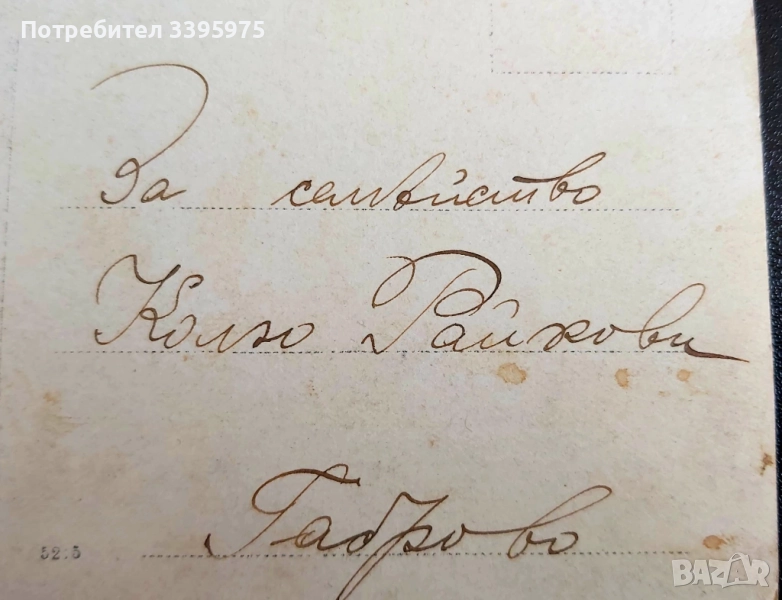 Потребител 3395975
За семѣйство
Колю Райкови
Габрово
52:5
BAZAR